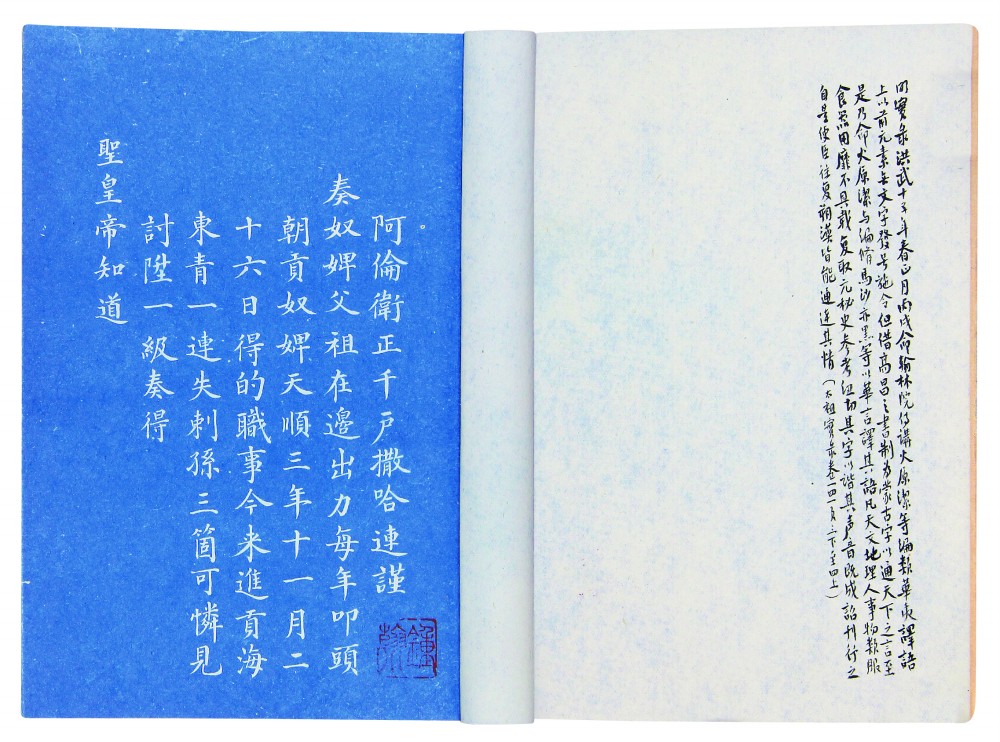 明實录洪武十五年春正月丙戌命翰林院侍講火原潔等编類華夷譯語
上以前元素無文字發号施令但借高昌之書制为蒙古字以通天下之言至
是乃命火原潔与编脩馬沙亦黑等以華言譯其語凡天文地理人事物類服
食器用靡不具載复取元秘史参考纽切其字以諧其声音既成詔刊行之
自是使臣往复朔漠皆能通達其情（太祖實录卷一四一頁三下至四上）
阿倫衛正千戶撒哈連謹
奏奴婢父祖在邊出力每年叩頭
朝貢奴婢天順三年十一月二
十六日得的職事今来進貢海
東青一連失剌孫三箇可憐見
討陞一級奏得
聖皇帝知道